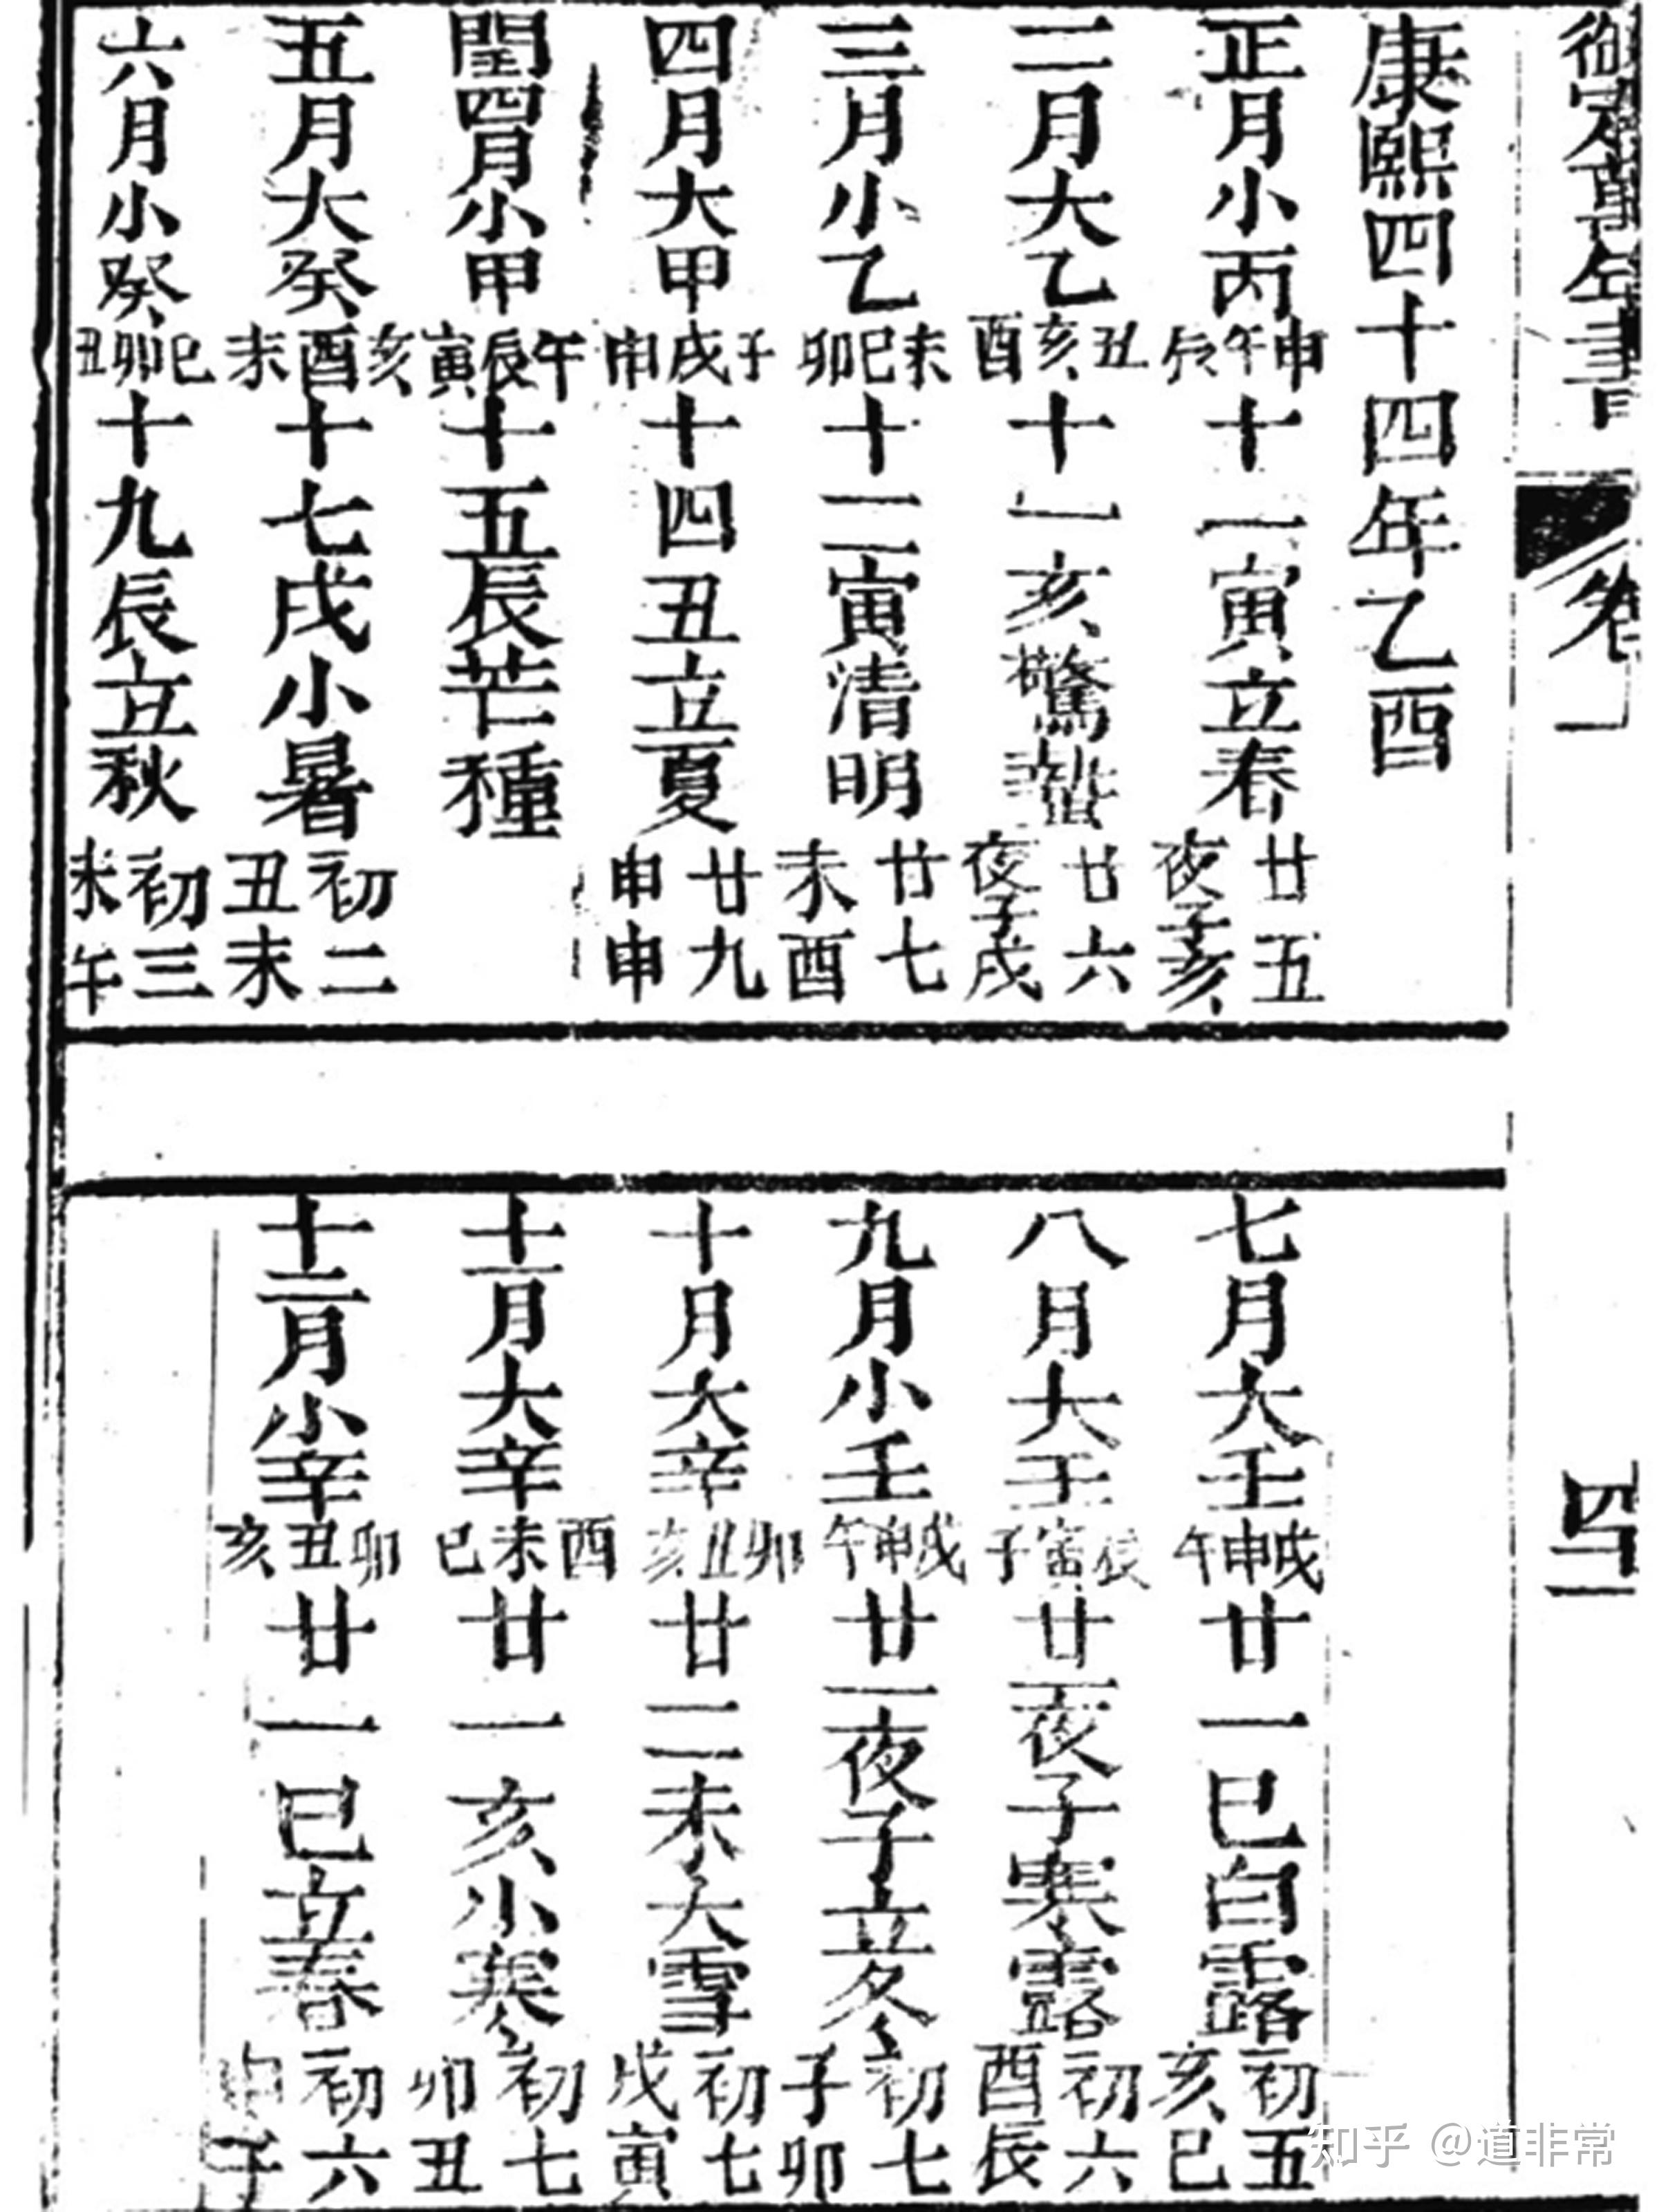 御定萬年書
卷一
四二
康熙四十四年乙酉
正月小丙申午辰十一寅立春廿五夜子亥
二月大乙丑亥酉十一亥驚蟄廿六夜子戌
三月小乙未巳卯十二寅清明廿七未酉
四月大甲子戌申十四丑立夏廿九申申
閏四月小甲午辰寅十五辰芒種
五月大癸亥酉未十七戌小暑初二丑未
六月小癸巳卯丑十九辰立秋初三未午
七月大壬戌申午廿一巳白露初五亥巳
八月大壬辰寅子廿一夜子寒露初六酉辰
九月小壬戌申午廿一夜子立冬初七子卯
十月大辛卯丑亥廿二未大雪初七戌寅
十一月大辛酉未巳廿一亥小寒初七卯丑
十二月小辛卯丑亥廿一巳立春初六子
知乎 @道非常